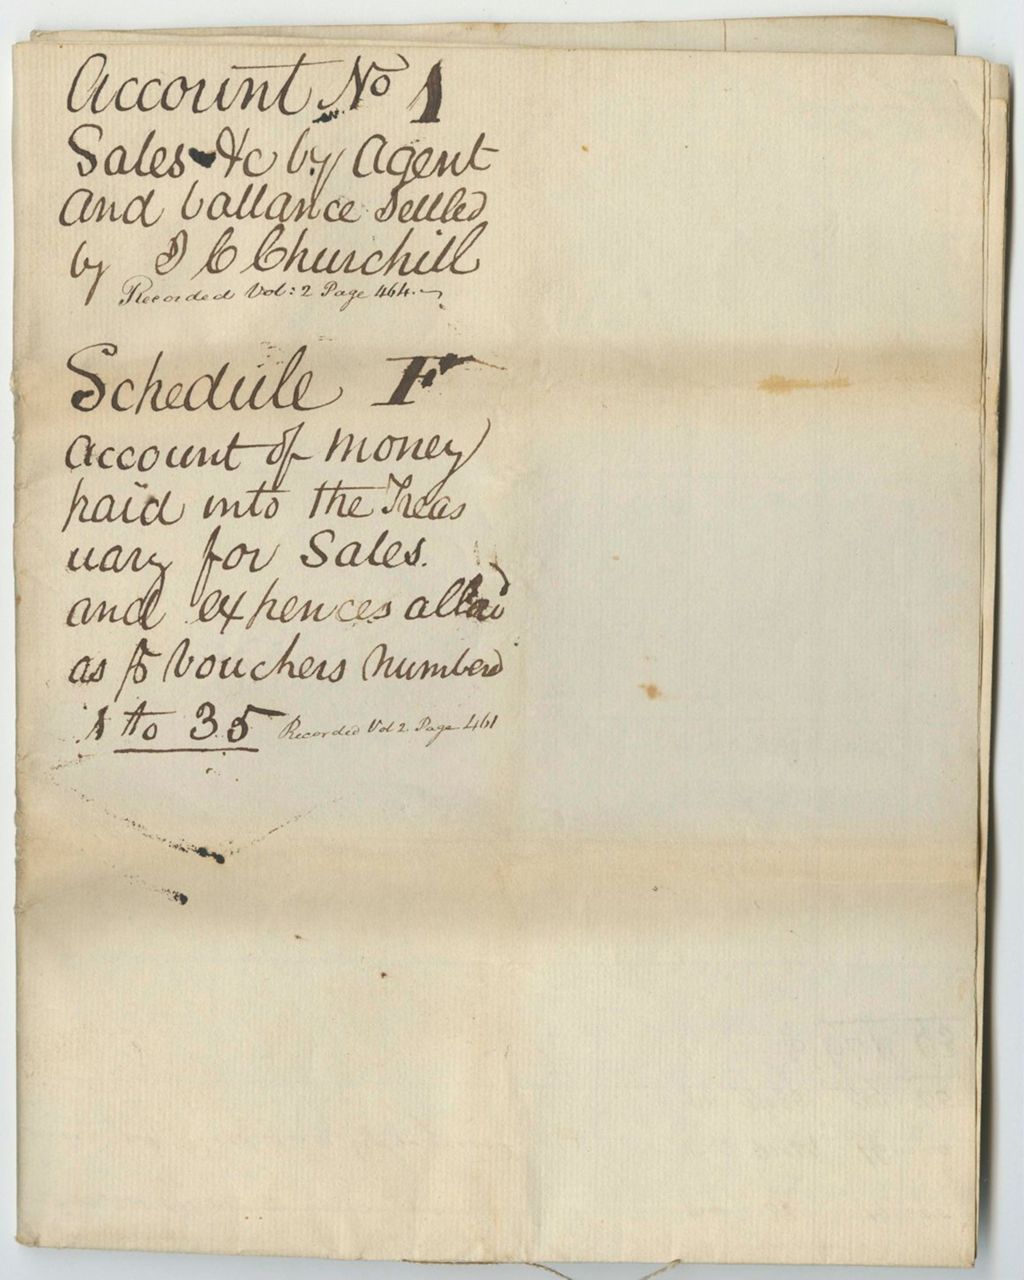 Account No 1
Sales &c by Agent
and ballance settled
by J C Churchill
Recorded Vol: 2 Page 464.
Schedule F
account of money
paid into the Treas
uary for Sales.
and expences
as ⅌ Vouchers Numberd
1 to 35 Recorded Vol 2 Page 461